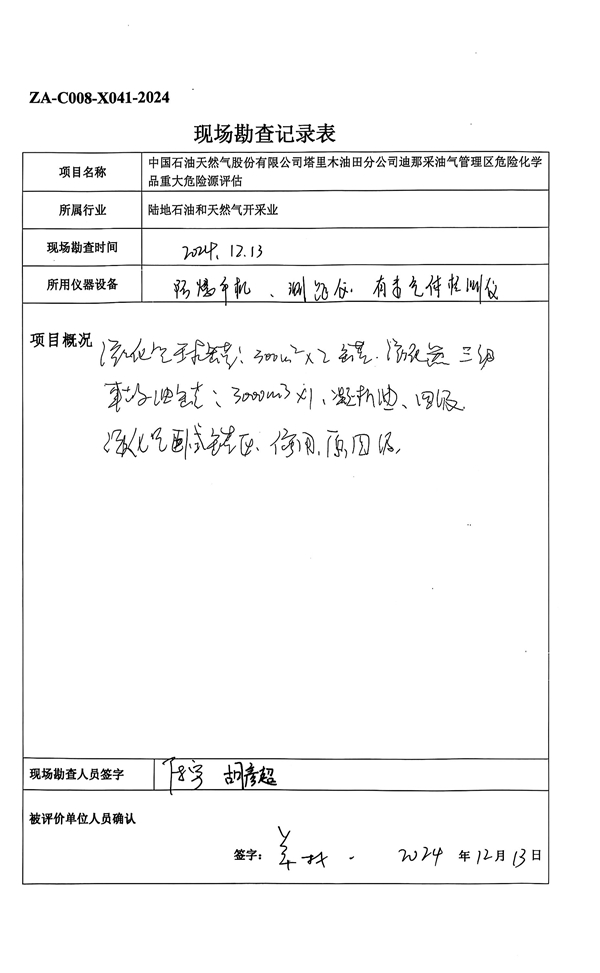 ZA-C008-X041-2024
现场勘查记录表
项目名称
中国石油天然气股份有限公司塔里木油田分公司迪那采油气管理区危险化学
品重大危险源评估
所属行业
陆地石油和天然气开采业
现场勘查时间
2024.12.13
所用仪器设备
防爆手机、测距仪、有毒气体检测仪
项目概况
液化气球罐:300m³×2 三级
事故油罐:3000m³×1、凝析油、四级
液化气卧式罐区、停用,原四级.
现场勘查人员签字
胡彦超
被评价单位人员确认
签字:
2024 年 12 月 13 日